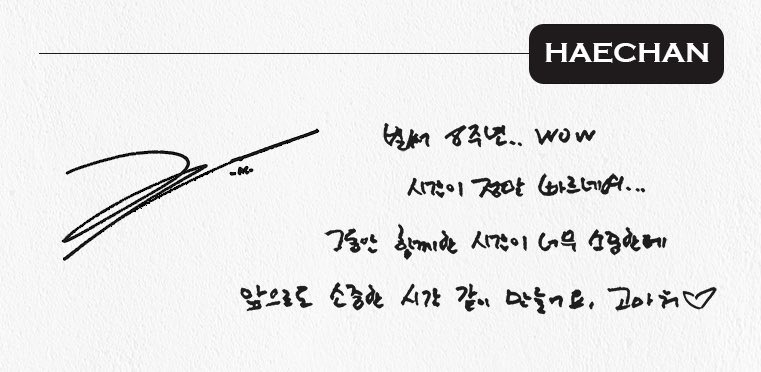 HAECHAN
벌써 8주년.. WOW
시간이 정말 빠르네여...
그동안 함께한 시간이 너무 소중한데
앞으로도 소중한 시간 같이 만들어요. 고마워♡